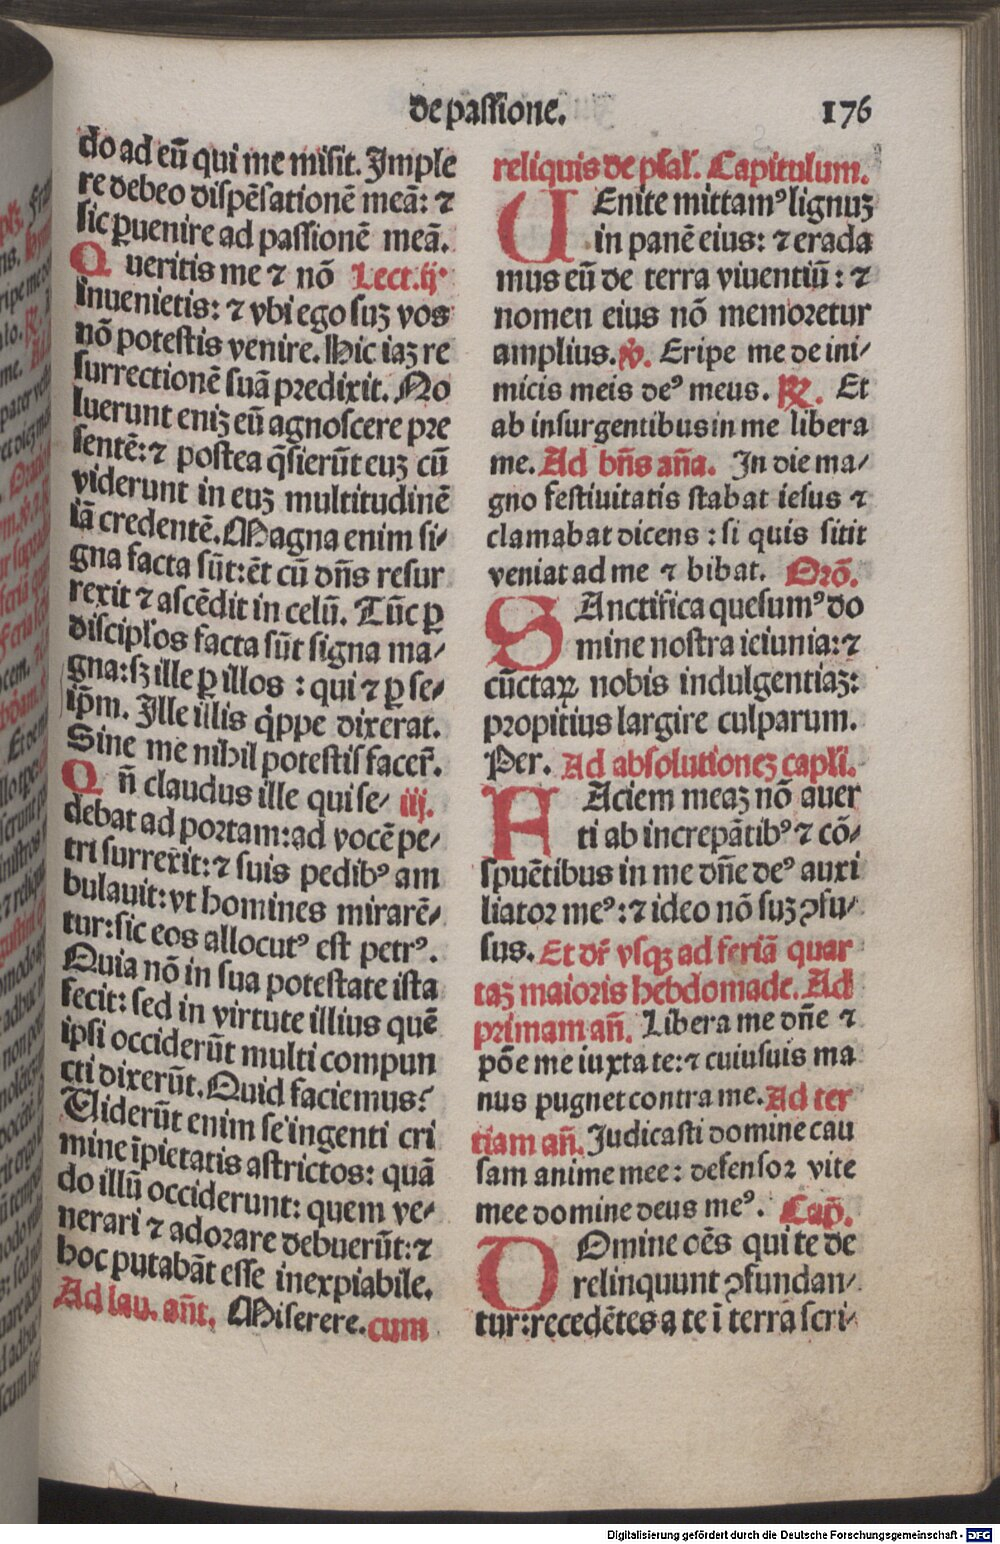 de passione.
176
do ad eū qui me misit. Imple
re debeo dispēsationē meā: ⁊
sic ꝑuenire ad passionē meā.
Queritis me ⁊ nō Lect. ij.
inuenietis: ⁊ vbi ego suꝫ vos
nō potestis venire. Hic iaꝫ re
surrectionē suā predixit. No
luerunt eniꝫ eū agnoscere pre
sentē: ⁊ postea q̄sierūt euꝫ cū
viderunt in euꝫ multitudinē
iā credentē. Magna enim si⸗
gna facta sūt: ēt cū dn̄s resur
rexit ⁊ ascēdit in celū. Tūc ꝑ
discipl'os facta sūt signa ma⸗
gna: sꝫ ille ꝑ illos : qui ⁊ ꝑ se⸗
ip̄m. Ille illis q̇ppe dixerat.
Sine me nihil potestis facer̄.
Qn̄ claudus ille qui se⸗ iij.
debat ad portam: ad vocē pe⸗
tri surrexit: ⁊ suis pedibꝰ am
bulauit: vt homines mirarē⸗
tur: sic eos allocutꝰ est petrꝰ.
Quia nō in sua potestate ista
fecit: sed in virtute illius quē
ipsi occiderūt multi compun
cti dixerūt. Quid faciemus?
Uiderūt enim se ingenti cri
mine īpietatis astrictos: quā
do illū occiderunt: quem ve⸗
nerari ⁊ adorare debuerūt: ⁊
hoc putabāt esse inexpiabile.
Ad lau. an̄t. Miserere. cum
reliquis de psal'. Capitulum.
UEnite mittamꝰ lignuꝫ
in panē eius: ⁊ erada
mus eū de terra viuentiū : ⁊
nomen eius nō memoretur
amplius. ℣. Eripe me de ini⸗
micis meis deꝰ meus. ℟. Et
ab insurgentibus in me libera
me. Ad bn̄s an̄a. In die ma⸗
gno festiuitatis stabat iesus ⁊
clamabat dicens : si quis sitit
veniat ad me ⁊ bibat. Orō.
SAnctifica quesumꝰ do
mine nostra ieiunia: ⁊
cūctaꝝ nobis indulgentiaꝫ:
propitius largire culparum.
Per. Ad absolutioneꝫ capli.
FAciem meaꝫ nō auer
ti ab increpātibꝰ ⁊ cō⸗
spuētibus in me dn̄e deꝰ auxi
liator meꝰ: ⁊ ideo nō suꝫ ꝯfu⸗
sus. Et dr̄ vsqꝫ ad feriā quar
taꝫ maioris hebdomade. Ad
primam an̄. Libera me dn̄e ⁊
pōe me iuxta te: ⁊ cuiusuis ma
nus pugnet contra me. Ad ter
tiam an̄. Judicasti domine cau
sam anime mee: defensor vite
mee domine deus meꝰ. Cap̄.
DOmine oēs qui te de
relinquunt ꝯfundan⸗
tur: recedētes a te ī terra scri⸗
Digitalisierung gefördert durch die Deutsche Forschungsgemeinschaft - DFG